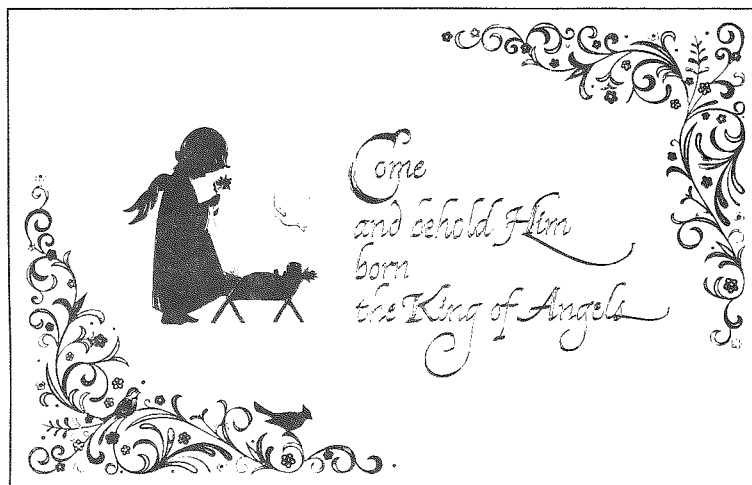 Come
and behold Him
born
the King of Angels